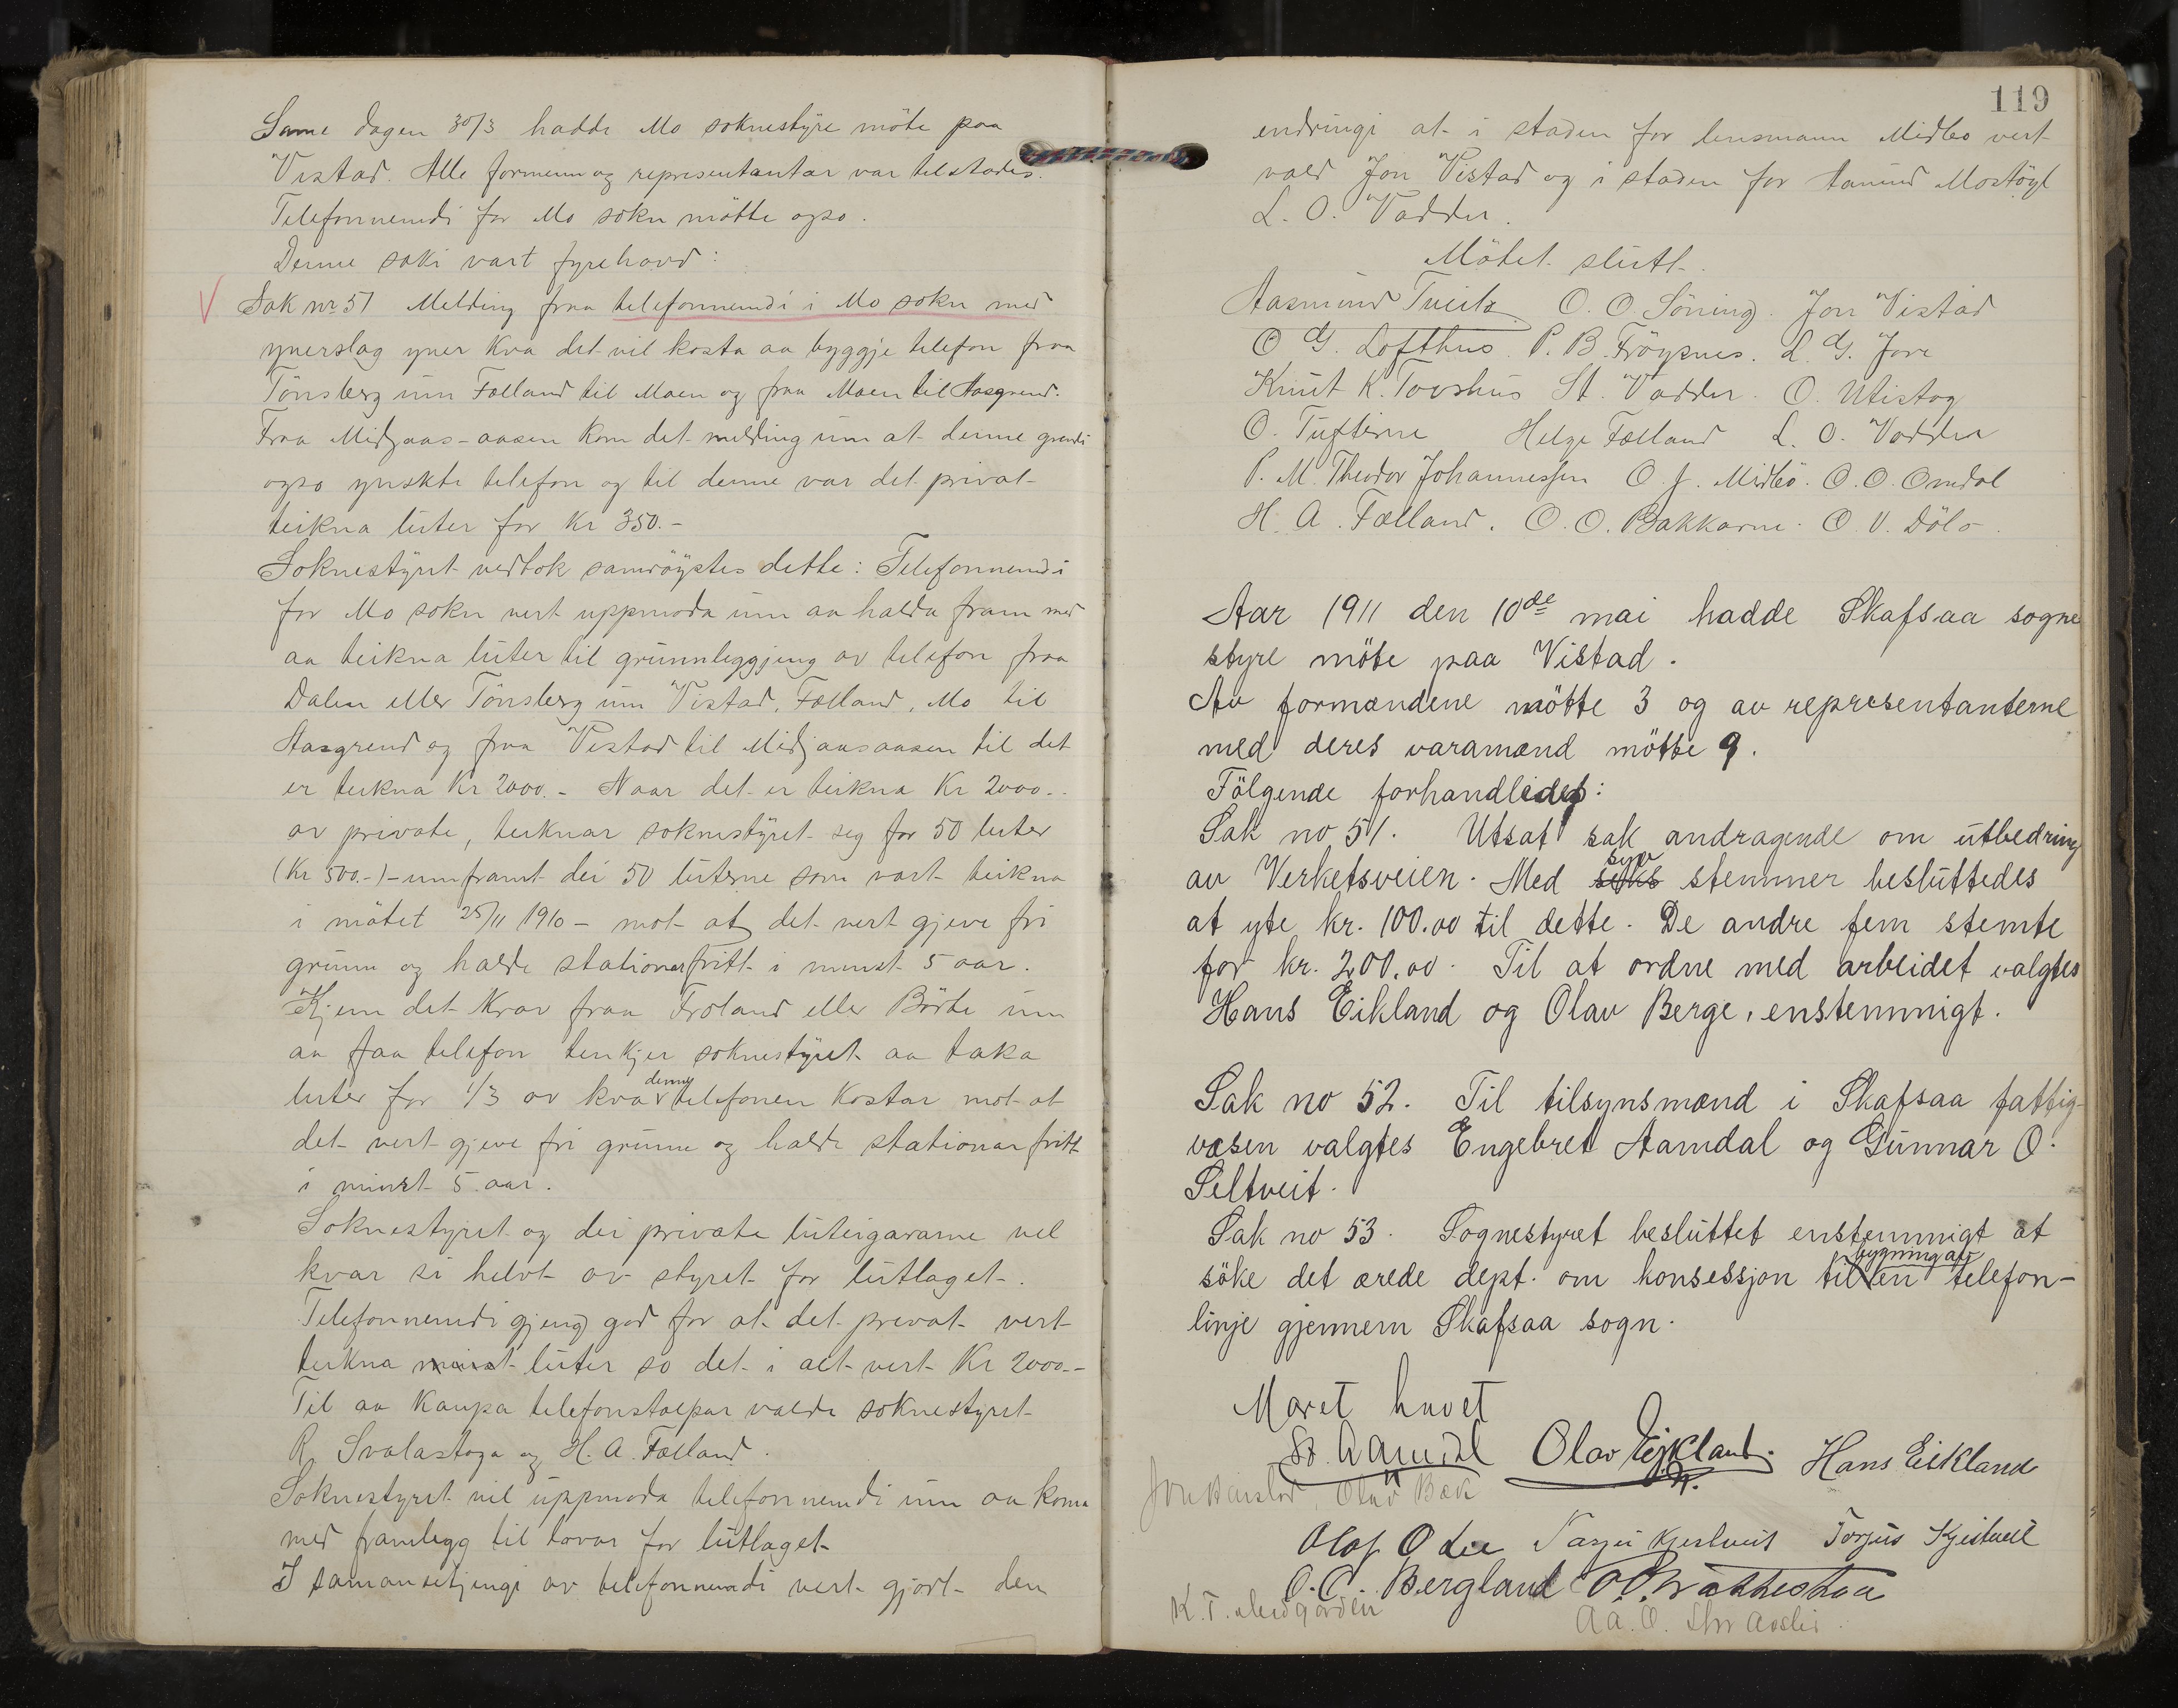 Same dagen 30/3 hadde Mo soknestyre möte paa
Vistad. Alle formenn og representantar var tilstades.
Telefonnemdi for Mo sokn mötte ogso.
Denne saki vart fyrehavd:
Sak nr 51 Melding fraa telefonnemdi i Mo sokn med
yverslag yver kva det vil kosta aa byggje telefon fraa
Tönsberg um Fælland til Moen og fraa Moen til Aasgrend.
Fraa Midjaas-aasen kom det melding um at denne grendi
ogso ynskte telefon og til denne var det privat
teikna luter for Kr 350.-
Soknestyret vedtok samröystes dette: Telefonnemdi
for Mo sokn vert uppmoda um aa halda fram med
aa teikna luter til grunnleggjing av telefon fraa
Dalen eller Tönsberg um Vistad, Fælland, Mo til
Aasgrend og fraa Vistad til Midjaasaasen til det
er teikna Kr 2000.- Naar det er teikna Kr 2000.-
av private, teiknar soknestyret seg for 50 luter
(Kr 500.-) - umframt dei 50 luterne som vart teikna
i mötet 25/11 1910 - mot at det vert gjeve fri
grunn og halde stationar fritt i minst 5 aar.
Kjem det krav fraa Froland eller Börte um
aa faa telefon tenkjer soknestyret aa taka
luter for 1/3 av kva denne telefonen kostar mot at
det vert gjeve fri grunn og halde stationar fritt
i minst 5 aar.
Soknestyret og dei private luteigararne vel
kvar si helvt av styret for lutlaget.
Telefonnemdi gjeng god for at det privat vert
teikna minst luter so det i alt vert Kr 2000.-
Til aa kaupa telefonstolpar valde soknestyret
R. Svalastoga og H. A. Fælland.
Soknestyret vil uppmoda telefonnemdi um aa koma
med framlegg til lovar for lutlaget.
I samansetjingi av telefonnemdi vert gjort den
119
endringi at i staden for lensmann Midbö vert
vald Jon Vistad og i staden for Aanund Mostögl
L. O. Vadder.
Mötet slutt.
Aasmund Tveito O. O. Söning. Jon Vistad
O G. Lofthus. P. B. Fröysnes. L. G. Jore
Knut K. Tovshus St. Vadder. O. Utistog
O. Tufterne Helge Fælland L. O. Vadder
P. M. Theodor Johannessen O. J. Midbö. O. O. Omdal
H. A. Fælland. O. O. Bakkarne. O. V. Dölo
Aar 1911 den 10de mai hadde Skafsaa sogne
styre möte paa Vistad.
Av formændene mötte 3 og av representanterne
med deres varamænd mötte 9.
Fölgende forhandledes:
Sak no 51. Utsat sak andragende om utbedring
av Verketsveien. Med seks syv stemmer besluttedes
at yte kr. 100.00 til dette. De andre fem stemte
for kr. 200.00. Til at ordne med arbeidet valgtes
Hans Eikland og Olav Berge, enstemmigt.
Sak no 52. Til tilsynsmænd i Skafsaa fattig-
væsen valgtes Engebret Aamdal og Gunnar O.
Seltveit.
Sak no 53. Sognestyret besluttet enstemmigt at
söke det ærede dept. om konsessjon til bygning av en telefon-
linje gjennem Skafsaa sogn.
Møtet hævet
Olav Eikland. Hans Eikland
Olav Bæk
Olaf O Lie Torjus Kjeilveit
O. C. Bergland
K. T. Midgarden Aa. O.